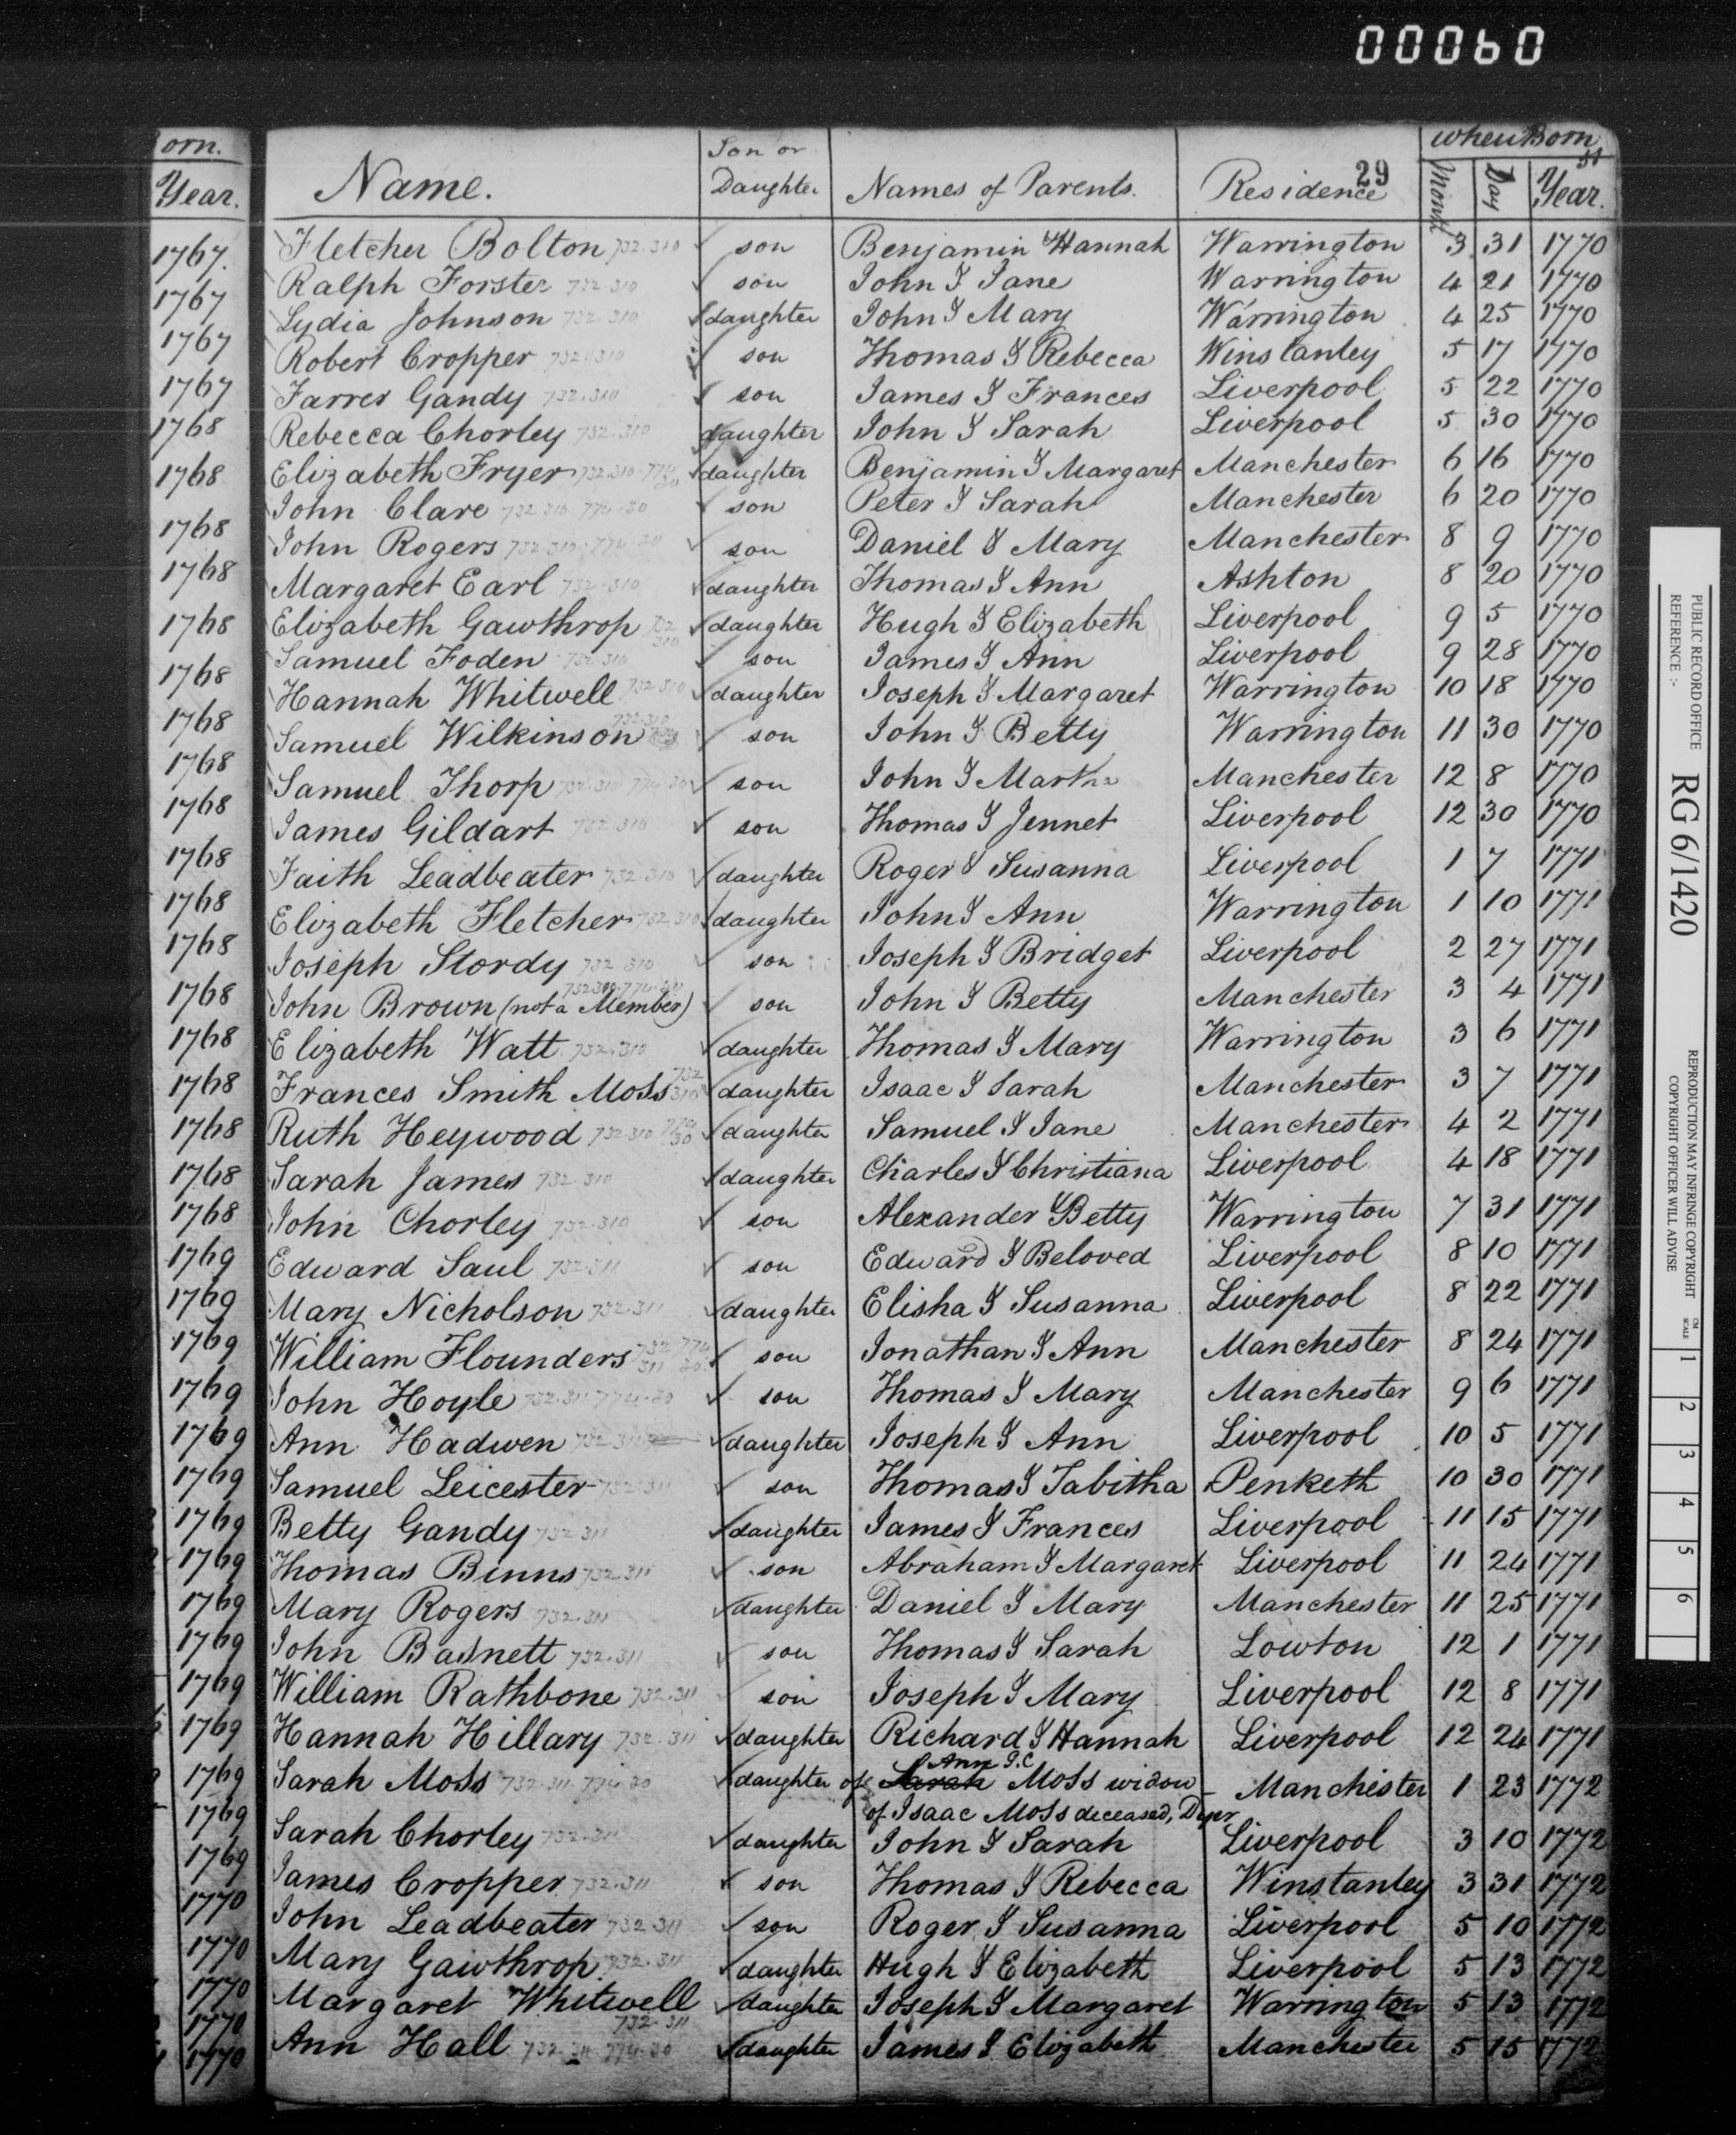 00060
orn. Son or when Born
Year. Name. Daughter Names of Parents. Residence 29 Month Day Year.
1767. Fletcher Bolton 732.310 son Benjamin & Hannah Warrington 3 31 1770
1767 Ralph Forster 732 310 son John & Jane Warrington 4 21 1770
Lydia Johnson 732.310 daughter John & Mary Warrington 4 25 1770
1767 Robert Cropper 732.310 son Thomas & Rebecca Winstanley 5 17 1770
1767 Farrer Gandy 732.310 son James & Frances Liverpool 5 22 1770
1768 Rebecca Chorley 732.310 daughter John & Sarah Liverpool 5 30 1770
1768 Elizabeth Fryer 732.310.774 30 daughter Benjamin & Margaret Manchester 6 16 1770
John Clare 732.310 774.30 son Peter & Sarah Manchester 6 20 1770
1768 John Rogers 732.310 774.30 son Daniel & Mary Manchester 8 9 1770
1768 Margaret Earl 732.310 daughter Thomas & Ann Ashton 8 20 1770
1768 Elizabeth Gawthrop 732 310 daughter Hugh & Elizabeth Liverpool 9 5 1770
Samuel Foden 732.310 son James & Ann Liverpool 9 28 1770
1768 Hannah Whitwell 732.310 daughter Joseph & Margaret Warrington 10 18 1770
1768 Samuel Wilkinson 732.310 son John & Betty Warrington 11 30 1770
1768 Samuel Thorp 732.310 774.30 son John & Martha Manchester 12 8 1770
1768 James Gildart 732.310 son Thomas & Jennet Liverpool 12 30 1770
1768 Faith Leadbeater 732.310 daughter Roger & Susanna Liverpool 1 7 1771
1768 Elizabeth Fletcher 732 310 daughter John & Ann Warrington 1 10 1771
1768 Joseph Stordy 732.310 son Joseph & Bridget Liverpool 2 27 1771
1768 John Brown (not a Member) son John & Betty Manchester 3 4 1771
1768 Elizabeth Watt 732.310 daughter Thomas & Mary Warrington 3 6 1771
1768 Frances Smith Moss 732 310 daughter Isaac & Sarah Manchester 3 7 1771
1768 Ruth Heywood 732.310 774 30 daughter Samuel & Jane Manchester 4 2 1771
1768 Sarah James 732.310 daughter Charles & Christiana Liverpool 4 18 1771
1768 John Chorley 732.310 son Alexander & Betty Warrington 7 31 1771
1769 Edward Saul 732.311 son Edward & Beloved Liverpool 8 10 1771
1769 Mary Nicholson 732.311 daughter Elisha & Susanna Liverpool 8 22 1771
1769 William Flounders 732 774 311 30 son Jonathan & Ann Manchester 8 24 1771
1769 John Hoyle 732.311 774.30 son Thomas & Mary Manchester 9 6 1771
1769 Ann Hadwen 732.311 daughter Joseph & Ann Liverpool 10 5 1771
1769 Samuel Leicester 732.311 son Thomas & Tabitha Penketh 10 30 1771
1769 Betty Gandy 732.311 daughter James & Frances Liverpool 11 15 1771
1769 Thomas Binns 732.311 son Abraham & Margaret Liverpool 11 24 1771
1769 Mary Rogers 732.311 daughter Daniel & Mary Manchester 11 25 1771
1769 John Basnett 732.311 son Thomas & Sarah Lowton 12 1 1771
1769 William Rathbone 732.311 son Joseph & Mary Liverpool 12 8 1771
1769 Hannah Hillary 732.311 daughter Richard & Hannah Liverpool 12 24 1771
Ann
1769 Sarah Moss 732.311 774.30 daughter of Sarah Moss widow Manchester 1 23 1772
1769 of Isaac Moss deceased, Dyer
Sarah Chorley 732.311 daughter John & Sarah Liverpool 3 10 1772
1769 James Cropper 732.311 son Thomas & Rebecca Winstanley 3 31 1772
1770 John Leadbeater 732.311 son Roger & Susanna Liverpool 5 10 1772
1770 Mary Gawthrop 732.311 daughter Hugh & Elizabeth Liverpool 5 13 1772
1770 Margaret Whitwell 732.311 daughter Joseph & Margaret Warrington 5 13 1772
1770 Ann Hall 732.311 774.30 daughter James & Elizabeth Manchester 5 15 1772
1770
PUBLIC RECORD OFFICE
REFERENCE :-
RG 6/1420
REPRODUCTION MAY INFRINGE COPYRIGHT
COPYRIGHT OFFICER WILL ADVISE
CM
SCALE
1 2 3 4 5 6